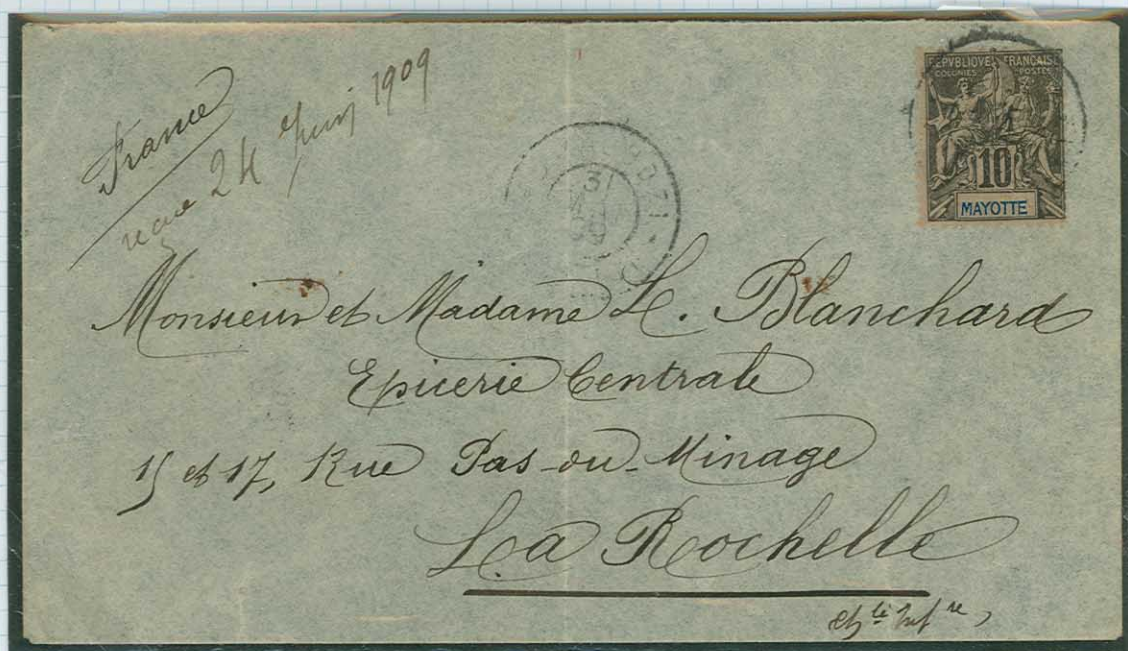 France
reçue 24 Juin 1909
REPVBLIQVE FRANÇAISE
COLONIES POSTES
10
MAYOTTE
31
09
Monsieur et Madame L. Blanchard
Epicerie Centrale
15 et 17, Rue Pas-du-Minage
La Rochelle
Ch.te Inf.re